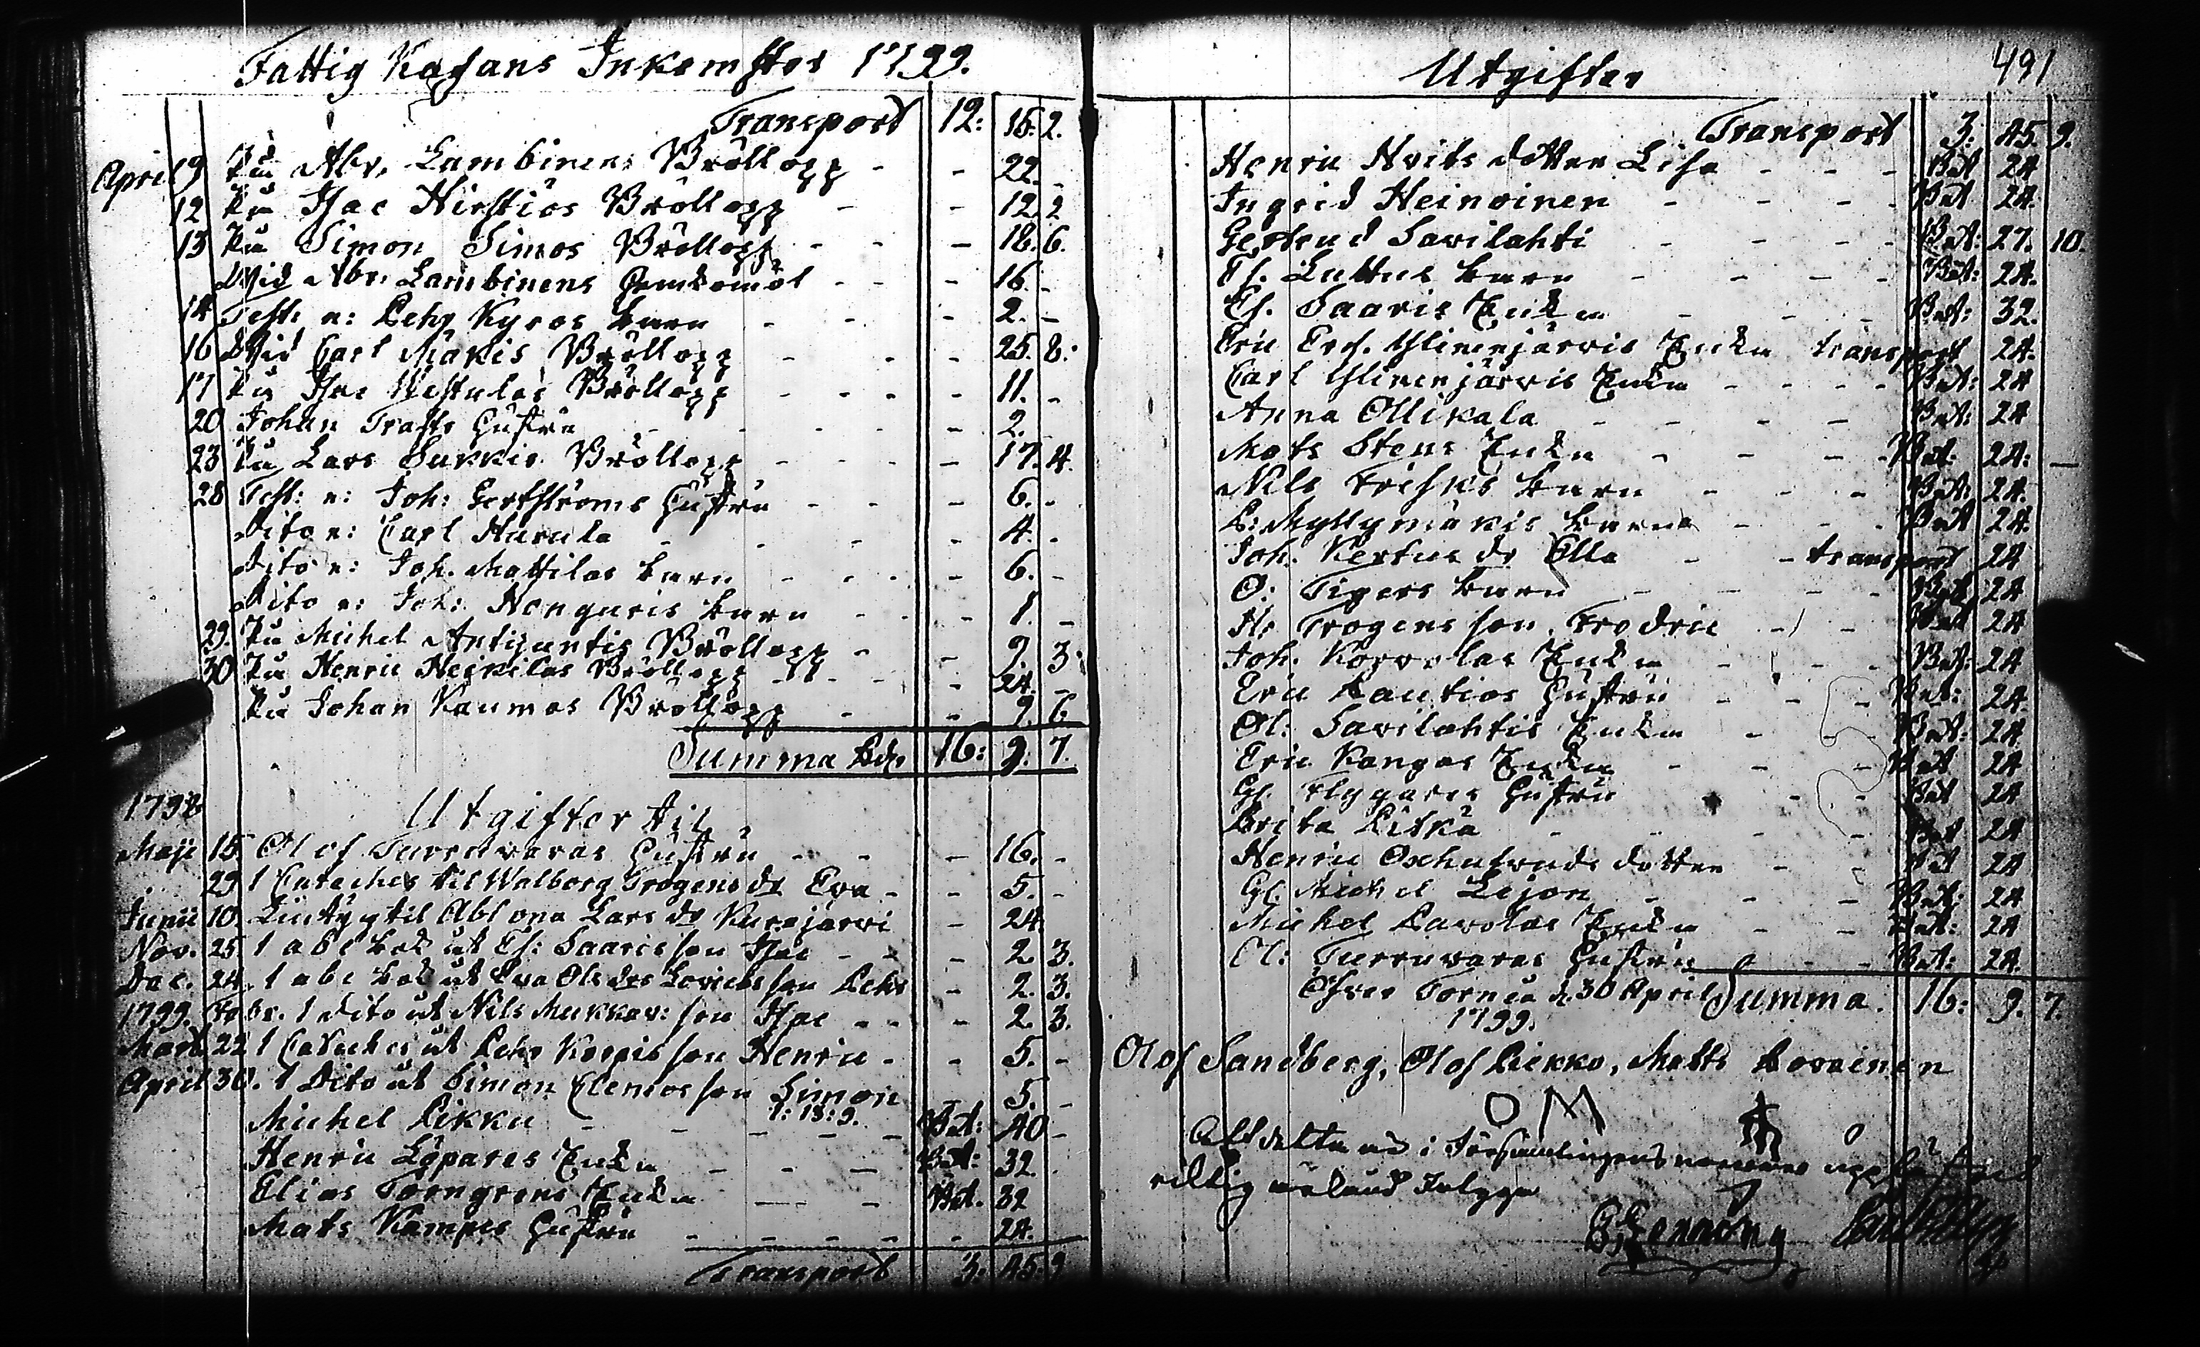 Fattig Kassans Inkomster 1799.
Transport 12: 16. 2.
April 9 På Abr. Lambinens Bröllopp - - 22. -
12 På Isac Hirstios Bröllopp - - 12. 2
13 På Simon Simos Bröllopp - - - 18. 6.
Wid Abr. Lambinens - - - 16. -
14 Test: e: Pehr Kyrös barn - - - 2. -
16 Wid Carl Mäkis Bröllopp - - - 25. 8.
17 På Isac Westulas Bröllopp - - - 11. -
20 Johan Trasts Hustru - - - 2.
23 På Lars Surkis Bröllopp - - - 17. 4.
28 Test: e: Joh: Gertströms Hustru - - 6. -
Dito e: Carl Hurula - - - 4. -
Dito e: Joh. Mattilas barn - - - 6. -
Dito e: Joh: Honguris barn - - - 1. -
29. På Michel Antijuntis Bröllopp - - 9. 3.
30 På Henric Heikilas Bröllopp - - - 24. -
På Johan Kaumas Bröllopp - - 9. 6.
Summa Rdr 16: 9. 7.
1798 Utgifter til
Maji 15 Olof Turruvaras Hustru - - - 16. -
29 1 Cateches til Walborg Trogens dr Eva - - 5. -
Junii 10. til Abl ona Lars dr Kurojärvi - 24.
Nov. 25 1 abc bok åt Es: Saaris son Isac - - 2 3.
Dec. 24. 1 abc bok åt Eva Ols drs son Pehr - 2. 3.
1799. Febr. 1 dito åt Nils Mukkav: son Isac - - 2. 3.
Mart. 22 1 Cateches åt Pehr Korpis son Henric - - 5. -
April 30. 1 Dito åt Simon Clemos son Simon 5. -
Michel Pikku - - 1: 18: 9. - - Bet: 40 -
Henric Löpares Enka - - - Bet: 32
Elias Törngrens Enka - - - Bet. 32
Mats Kampes Hustru - - - - 24.
Transport 3: 45. 9
Utgifter 491
Transport 3: 45. 9.
Henric Hvits dotter Lisa - - - Bet 24
Ingrid Heinoinen - - - - Bet 24.
Gertrud Savilahti - - - Bet: 27. 10.
Es. Luttus barn - - - - Bet: 24.
Es. Saaris Enka - - - Bet: 32.
Eric Ers. Ylinenjärvis Enka transport 24.
Carl Ylinenjärvis Enka - - - Bet: 24
Anna Ollikala - - - - Bet: 24
Mats Stens Enka - - - Bet. 24. -
Nils Frisks barn - - - Bet: 24.
P: Myllymäkis barn - - - Bet 24.
Joh. Kertus dr Ella - - transport 24
O: Tigers barn - - - Bet 24
H. Trogens son Fredric - - Bet 24
Joh. Korvolas Enka - - - Bet: 24
Eric Rautios Hustru - - Bet: 24.
Ol: Savilahtis Enka - - Bet: 24.
Eric Kangas Enka - - - Bet 24
Gl. Flygares Hustru - - Bet 24
Brita Pitkä - - - Bet 24
Henric Oxhufvuds dotter - - Bet 24
Gl. Michel Lejon - - - Bet: 24
Michel Lavolas Enka - - Bet: 24
Ol: Turruvaras Hustru - - Bet: 24.
Öfver Torneå d. 30 April Summa. 16: 9. 7.
1799.
Olof Sandberg, Olof Pekko, Matts
O M
Att detta är i Församlingens närvaro
riktig